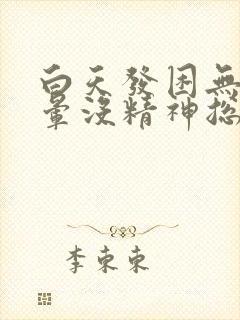 白天發困無
暈沒精神總
李東東